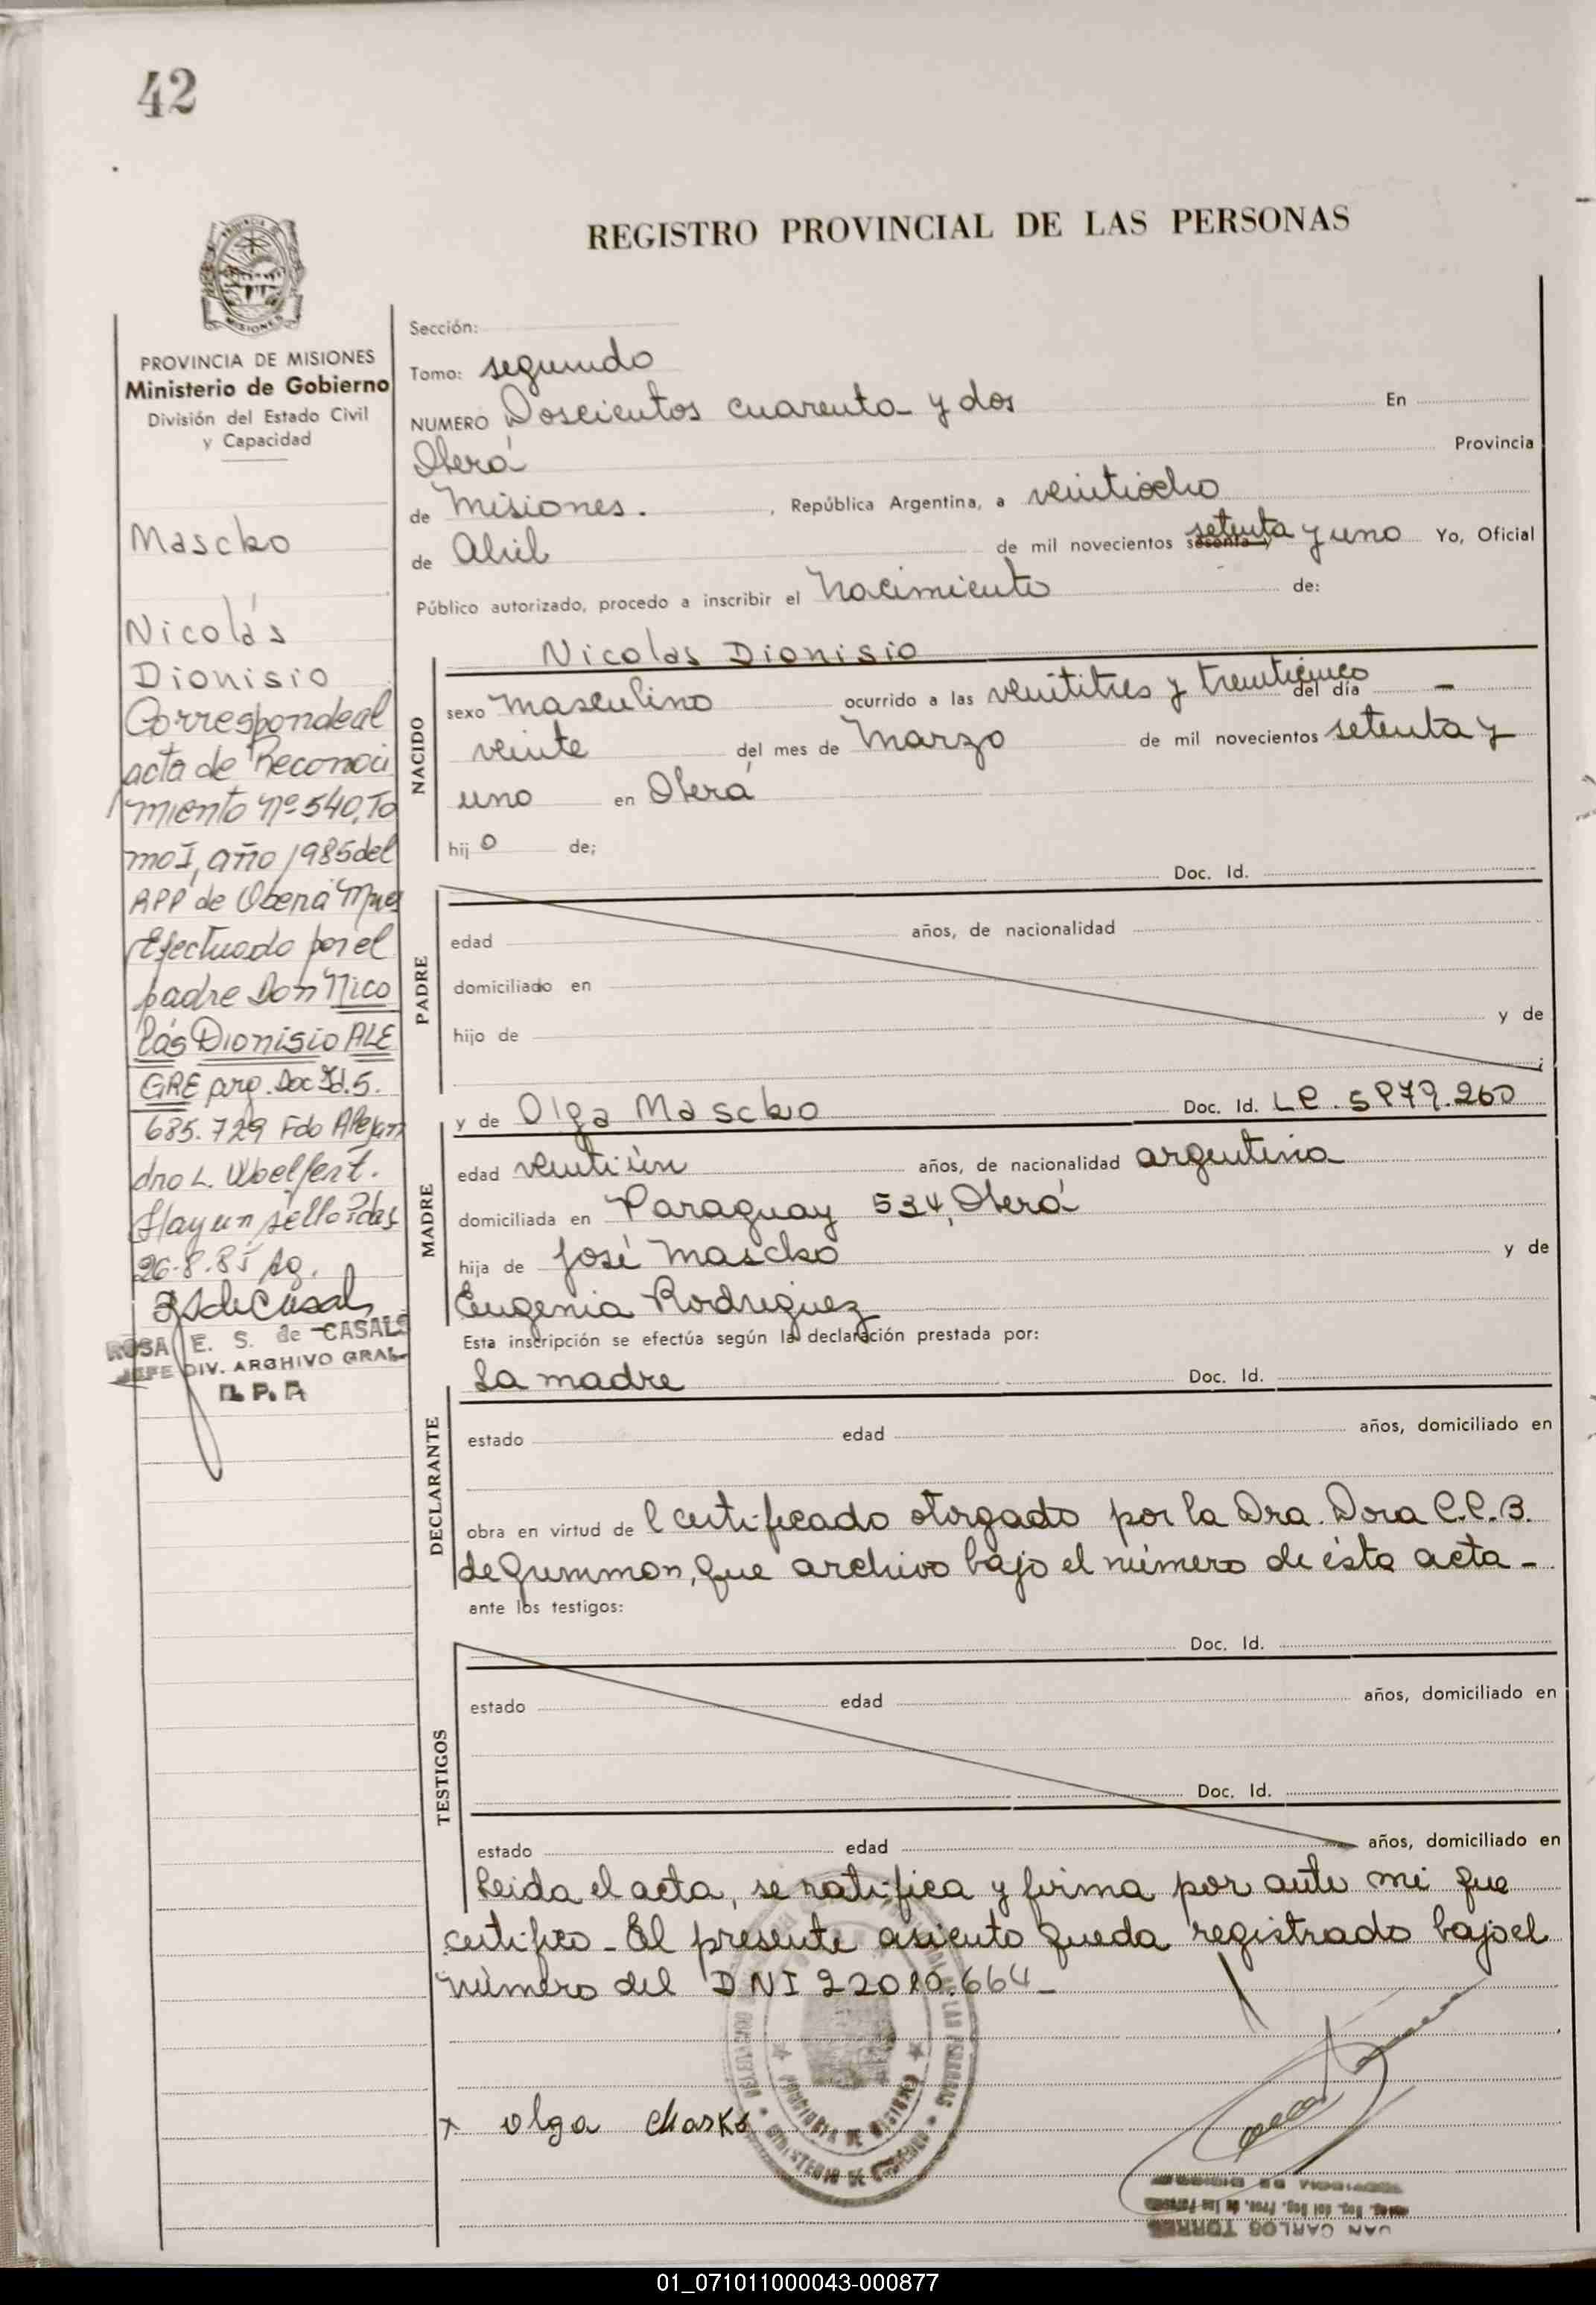 42
REGISTRO PROVINCIAL DE LAS PERSONAS
PROVINCIA DE MISIONES
Ministerio de Gobierno
División del Estado Civil
y Capacidad
Mascko
Nicolás
Dionisio
Corresponde al
acta de Reconoci
miento nº 540, To
mo I, año 1985 del
RPP de Oberá Mnes
Efectuado por el
padre Don Nico
lás Dionisio ALE
GRE arg. Doc Id. 5.
685.729 Fdo Alejan
dro L. Woelfert.
Hay un sello Pdas
26-8-85 Ag.
ROSA E. S. de CASALS
JEFE DIV. ARCHIVO GRAL
R. P. P.
Sección:
Tomo: segundo
NUMERO Doscientos cuarenta y dos En
Oberá Provincia
de Misiones. , República Argentina, a veintiocho
de Abril de mil novecientos sesenta y setenta y uno Yo, Oficial
Público autorizado, procedo a inscribir el Nacimiento de:
NACIDO
Nicolas Dionisio
sexo masculino ocurrido a las veintitres y treinticinco del día -
veinte del mes de Marzo de mil novecientos setenta y
uno en Oberá
hij o de;
PADRE
Doc. Id.
edad años, de nacionalidad
domiciliado en
hijo de y de
MADRE
y de Olga Mascko Doc. Id. LC. 5879.260
edad veintiún años, de nacionalidad argentina
domiciliada en Paraguay 534, Oberá
hija de José Mascko y de
Eugenia Rodriguez
Esta inscripción se efectúa según la declaración prestada por:
DECLARANTE
La madre Doc. Id.
estado edad años, domiciliado en
obra en virtud de l certificado otorgado por la Dra. Dora C.C.B.
de que archivo bajo el número de ésta acta -
ante los testigos:
TESTIGOS
Doc. Id.
estado edad años, domiciliado en
Doc. Id.
estado edad años, domiciliado en
Leida el acta, se ratifica y firma por ante mi que
certifico - El presente asiento queda registrado bajo el
número del DNI 22010.664 -
x olga Masko
PROVINCIA DE MISIONES
MINISTERIO DE GOBIERNO
JUAN CARLOS TORRES
01_071011000043-000877